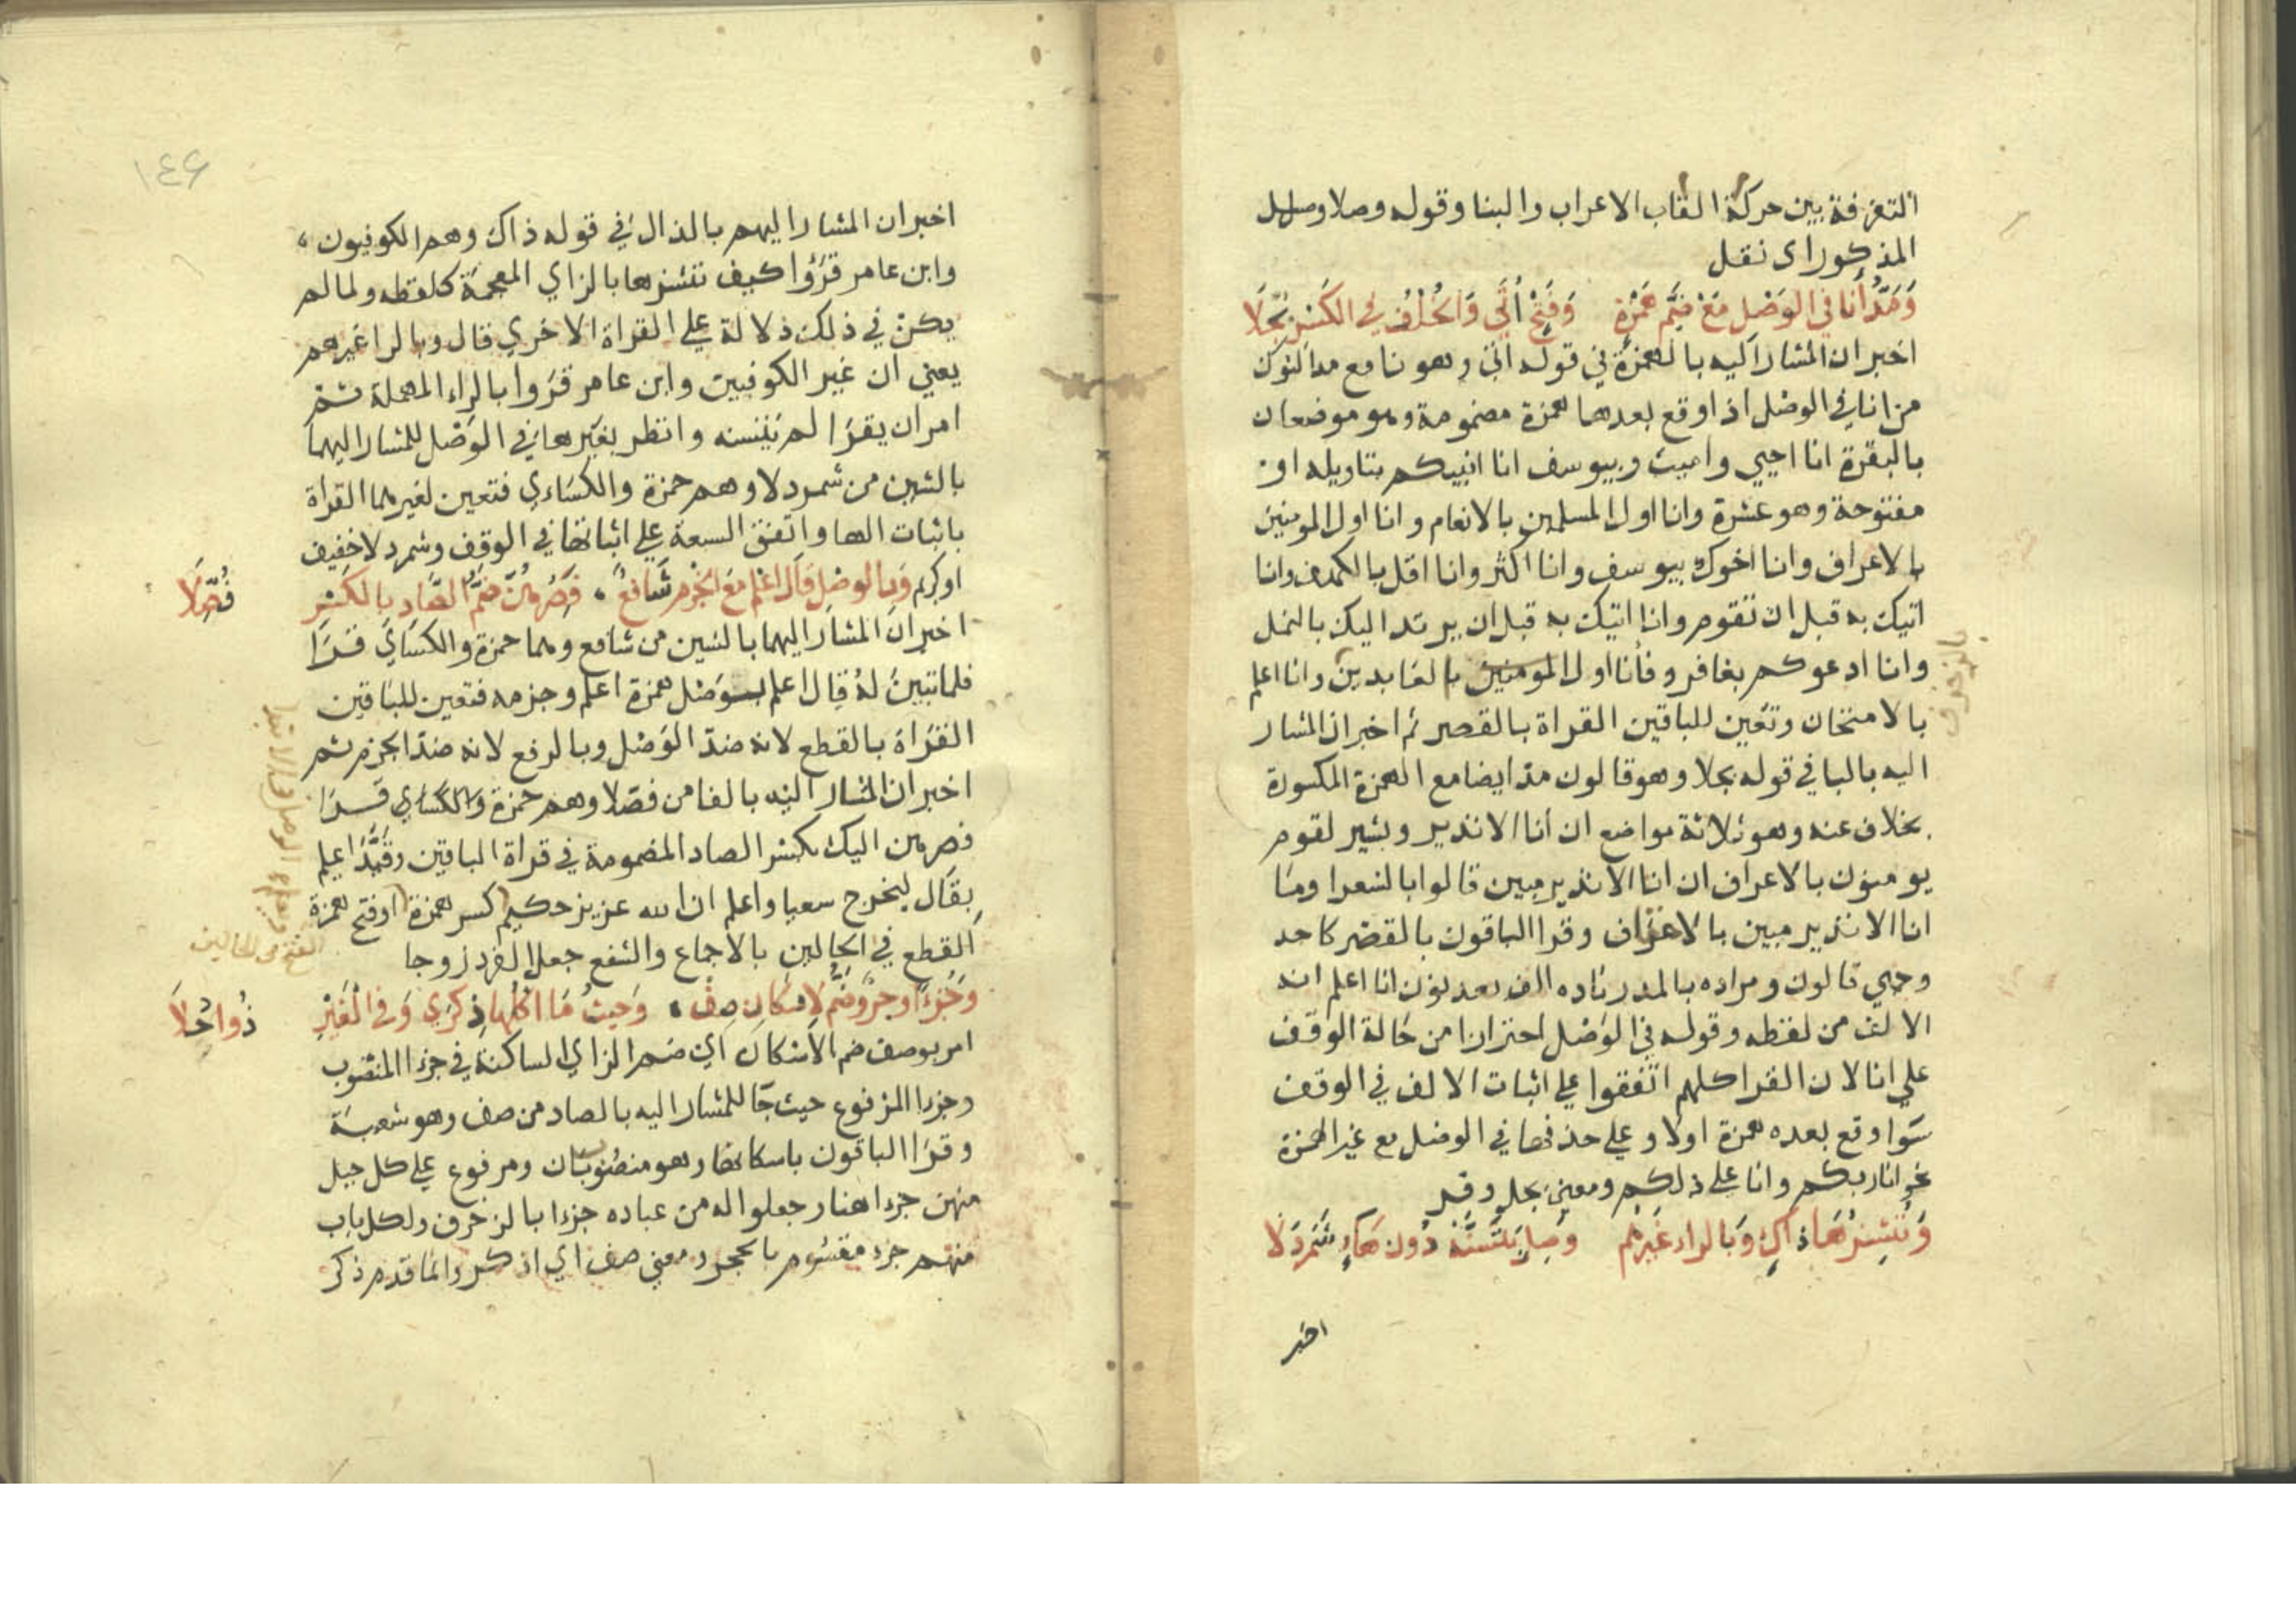 التفرقة بين حركة القاب الاعراب والبنا وقوله وصلا وسلسل
المذكور اى نقل
وَمَدُّ أَنَا فِي الوَصْلِ مَعْ ضَمِّ هَمْزَةٍ وَفَتْحٍ أَتَى وَالخُلْفُ فِي الكَسْرِ بُجِّلَا
اخبر ان المشار اليه بالهمزة في قوله اتى وهو نافع مد النون
من انا في الوصل اذا وقع بعدها همزة مضمومة وهو موضعان
بالبقرة انا احيي واميت وبيوسف انا انبيكم بتاويله او
مفتوحة وهو عشرة وانا اول المسلمين بالانعام وانا اول المومنين
بالاعراف وانا اخوك بيوسف وانا اكثر وانا اقل بالكهف وانا
اتيك به قبل ان تقوم وانا اتيك به قبل ان يرتد اليك بالنمل
وانا ادعوكم بغافر وفأنا اول المومنين بالعابدين وانا اعلم
بالزخرف
بالامتحان وتعين للباقين القراة بالقصر ثم اخبر ان المشار
اليه بالبا في قوله بجلا وهو قالون مد ايضا مع الهمزة المكسورة
بخلاف عنه وهو ثلاثة مواضع ان أنا الا نذير وبشير لقوم
يومنون بالاعراف ان انا الا نذير مبين قالوا بالشعرا وما
انا الا نذير مبين بالاحقاف وقرا الباقون بالقصر كاحد
وجهي قالون ومراده بالمد زياده الف بعد نون انا اعلم انه
الالف من لفظه وقوله في الوصل احترازا من حالة الوقف
على انا لان القرا كلهم اتفقوا على اثبات الالف في الوقف
سوا وقع بعده همزة اولا وعلى حذفها في الوصل مع غير الهمزة
نحو انا ربكم وانا على ذلكم ومعنى بجل وقر
وَنُنْشِزُهَا ذَاكٍ وَبِالرَاءِ غَيْرُهُمْ وَصِلْ يَتَسَنَّهْ دُونَ هَاءٍ شَمَرْدَلَا
اخبر
١٤٦
اخبر ان المشار اليهم بالذال في قوله ذاك وهم الكوفيون
وابن عامر قرؤا كيف ننشزها بالزاي المعجمة كلفظه ولما لم
يكن في ذلك دلالة على القراة الاخرى قال وبالرا غيرهم
يعني ان غير الكوفيين وابن عامر قروا بالراء المهملة ثم
امر ان يقرا لم يتسنه وانظر بغير ها في الوصل للمشار اليهما
بالشين من شمردلا وهم حمزة والكساءي فتعين لغيرهما القراة
باثبات الها واتفق السبعة على اثباتها في الوقف وشمردلا خفيف
او كريم وَبِالوَصْلِ قَالَ اعْلَمْ مَعَ الجَزْمِ شَافِعٌ فَصُرْهُنَّ ضَمُّ الصَّادِ بِالكَسْرِ فُصِّلَا
اخبر ان المشار اليهما بالشين من شافع وهما حمزة والكساي قرا
فلما تبين له قال اعلم بوصل همزة اعلم وجزمه فتعين للباقين
القراة بالقطع لانه ضد الوصل وبالرفع لانه ضد الجزم ثم
اخبر ان المشار اليه بالفا من فصلا وهو حمزة والكساي قرا
فصرهن اليك بكسر الصاد المضمومة في قراة الباقين وقيد اعلم
بقال ليخرج سعيا واعلم ان الله عزيز حكيم كسر همزة او فتح همزة
القطع في الحالين بالاجماع والشفع جعل الفرد زوجا
وَجُزْءًا وَجُزْءٌ ضَمَّ الاسْكَانَ صِفْ وَحَيْثُ مَا أُكْلُهَا ذِكْرَى وَفِي الْغَيْرِ ذُو اَحُلَا
امر بوصف ضم الاسكان اي ضم الزاي الساكنة في جزءا المنصوب
وجزء المرفوع حيث جا للمشار اليه بالصاد من صف وهو شعبة
وقرا الباقون باسكانها وهو منصوبان ومرفوع على كل جبل
منهن جزءا هنا وجعلوا له من عباده جزءا بالزخرف ولكل باب
منهم جزء مقسوم بالحجر ومعنى صف اي اذكر والما قدم ذكر